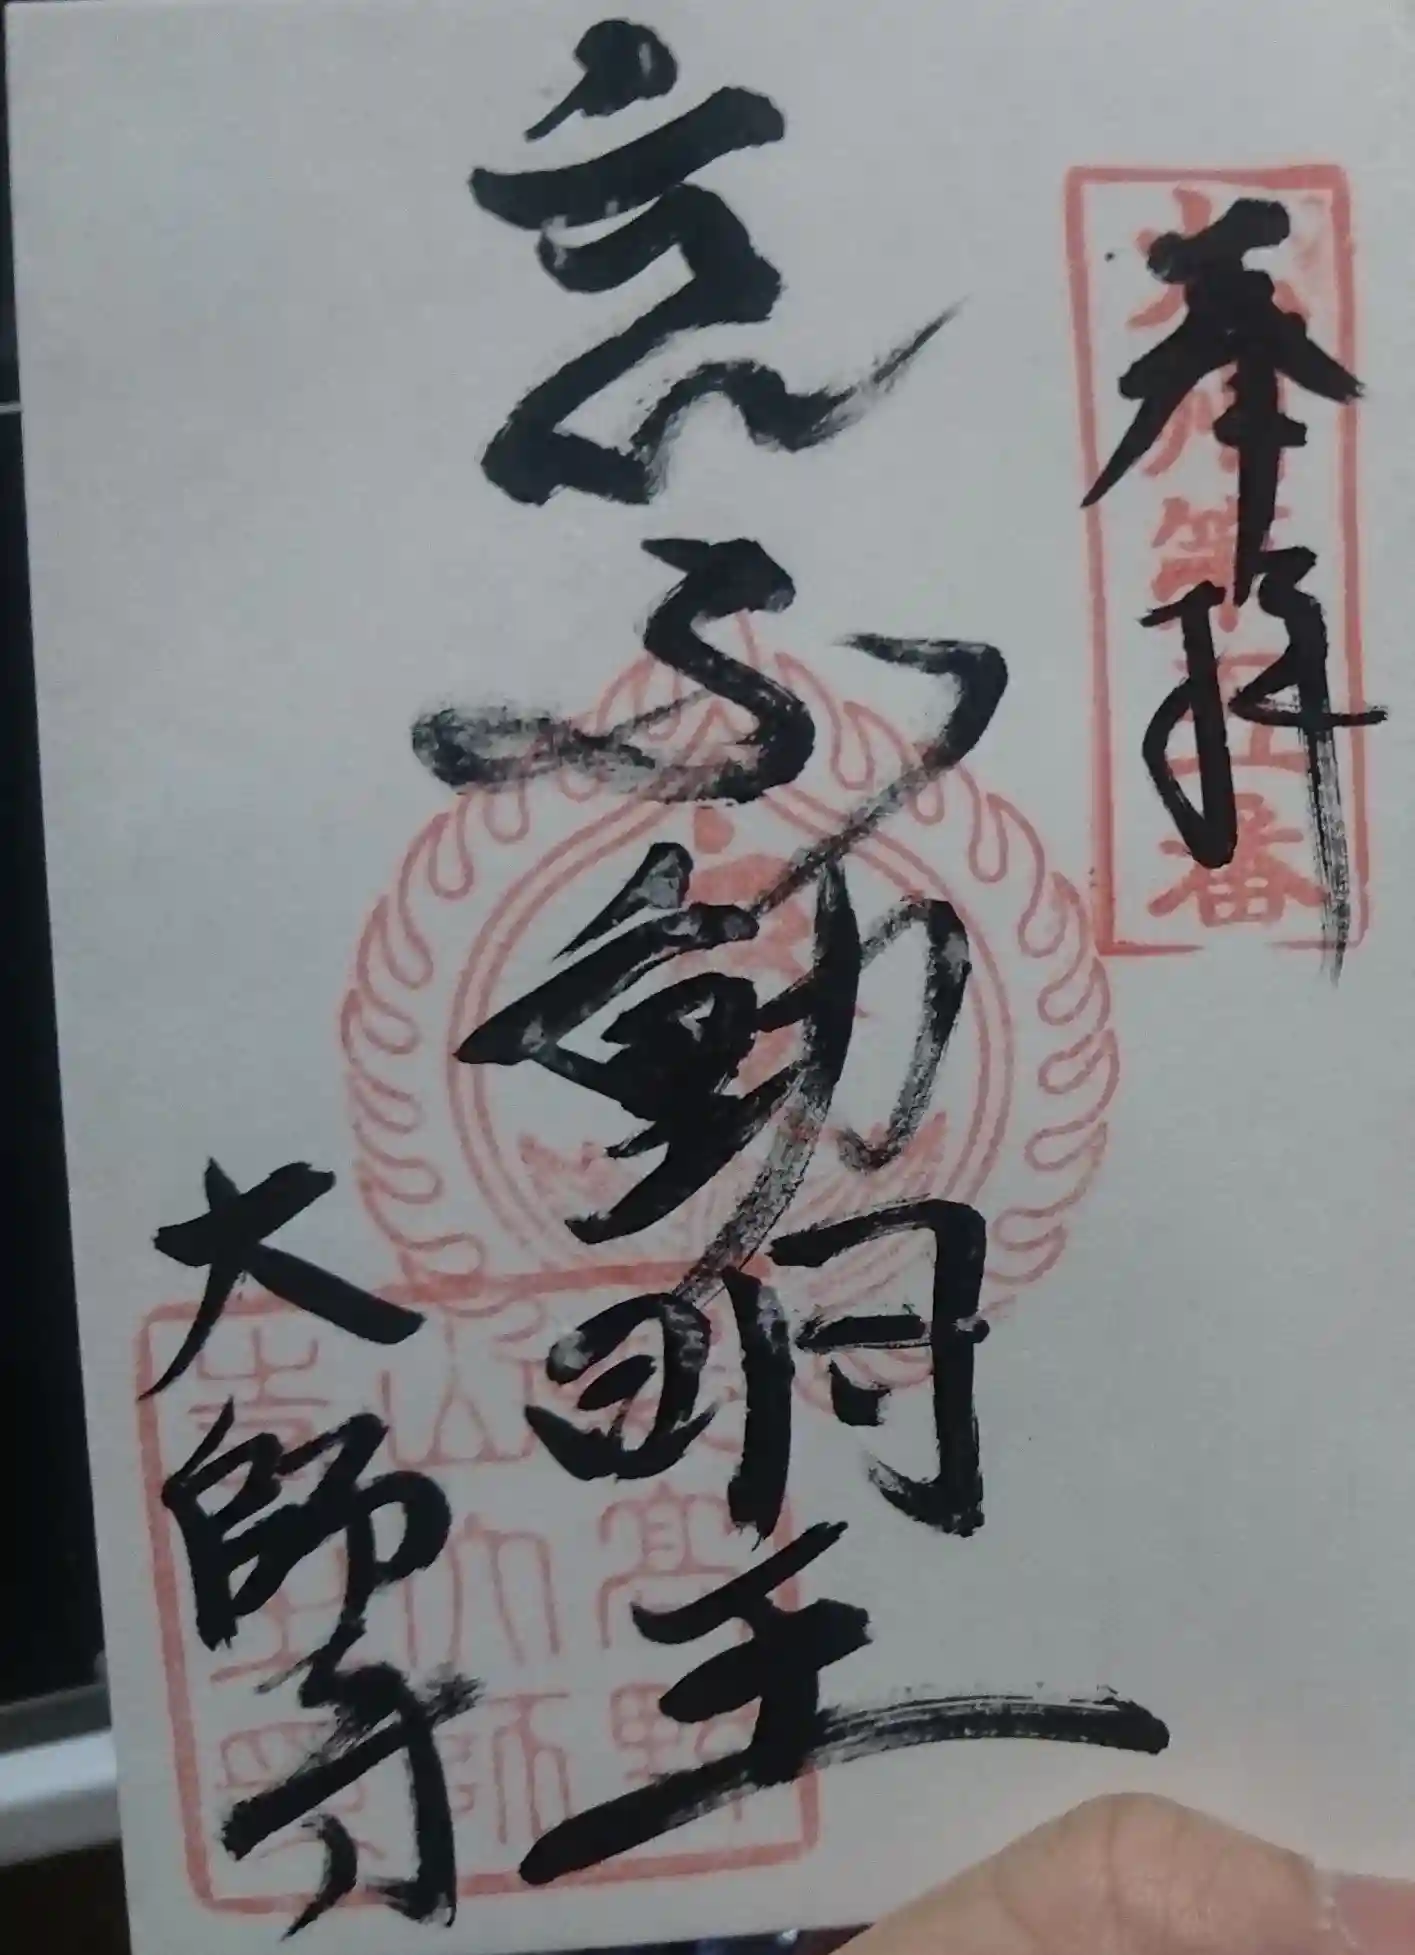 奉拝
第五番
不動明王
大師寺
高野
山大師
寺